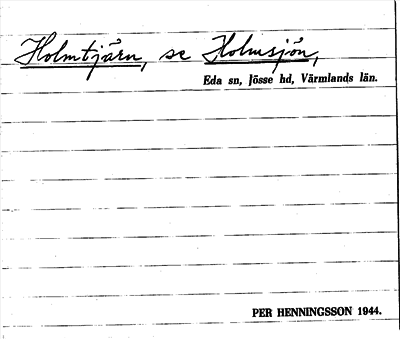 Holmtjärn, se Holmsjön,
Eda sn, Jösse hd, Värmlands län.
PER HENNINGSSON 1944.